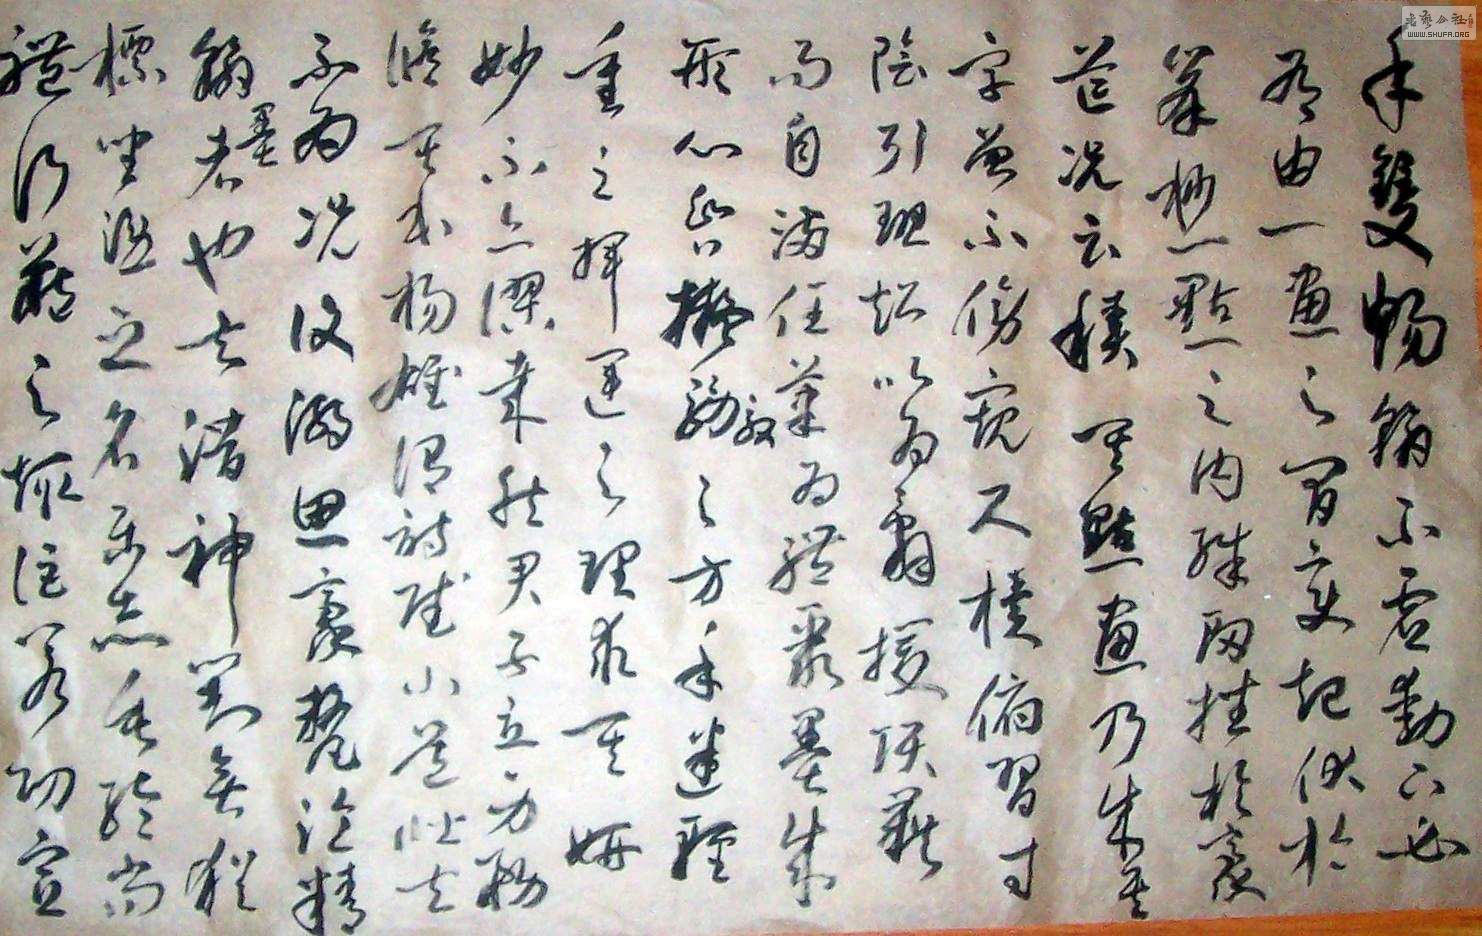 手雙暢翰不虛動下必
有由一畫之間變起伏於
峯杪一點之內殊衄挫於豪
芒況云積其點畫乃成其
字曾不傍窺尺櫝俯習寸
陰引班超以為辭援項籍
而自滿任筆為體聚墨成
形心昏擬効之方手迷輕
重之揮運之理求其妍
妙不亦謬哉然君子立身務
脩其本楊雄謂詩賦小道壯夫
不為況復溺思豪氂淪精
翰墨者也夫潛神對弈猶
標坐隱之名樂志垂綸尚
體行藏之趣詎若功宣
WWW.SHUFA.ORG